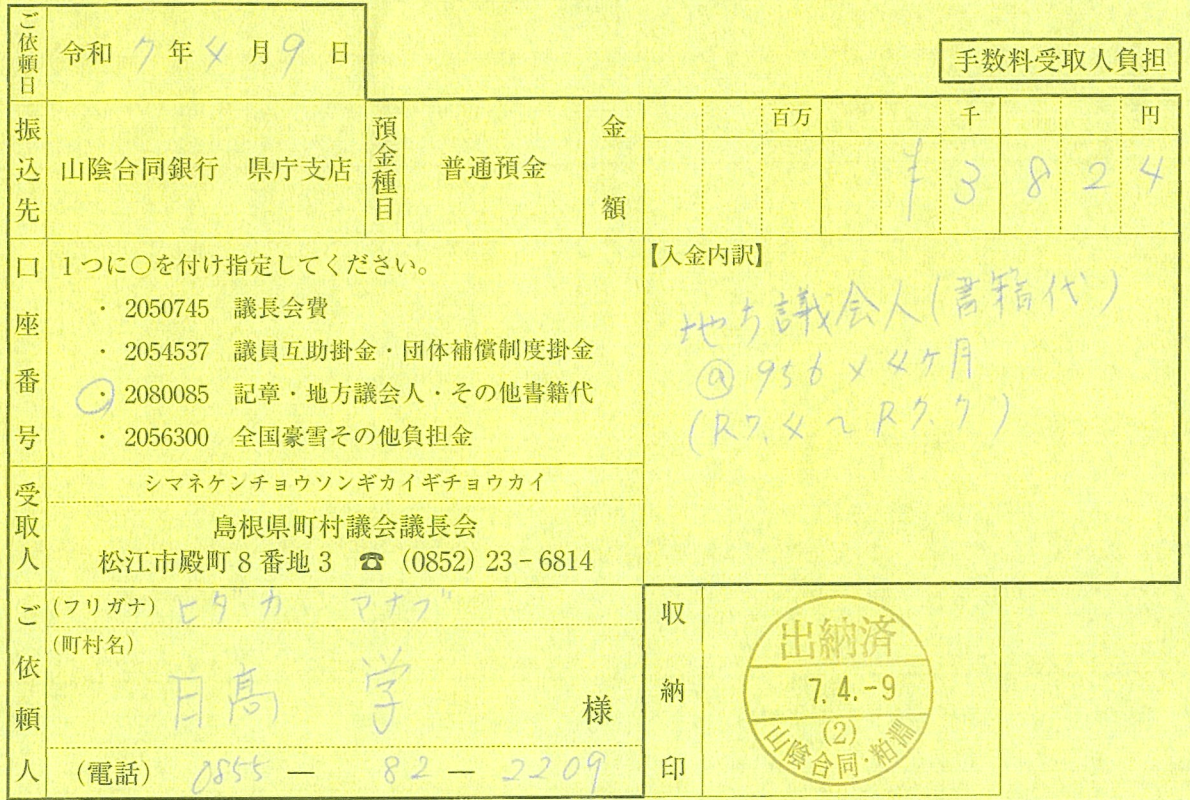 ご依頼日
令和 7 年 4 月 9 日
手数料受取人負担
振込先
山陰合同銀行 県庁支店
預金種目
普通預金
金額
百万 千 円
¥3824
口座番号
1つに○を付け指定してください。
・ 2050745 議長会費
・ 2054537 議員互助掛金・団体補償制度掛金
・ 2080085 記章・地方議会人・その他書籍代
・ 2056300 全国豪雪その他負担金
【入金内訳】
地方議会人(書籍代)
@956×4ヶ月
(R7.4~R7.7)
受取人
シマネケンチョウソンギカイギチョウカイ
島根県町村議会議長会
松江市殿町8番地3 ☎ (0852) 23-6814
ご依頼人
(フリガナ) ヒダカ マナブ
(町村名)
日高 学 様
(電話) 0855 — 82 — 2209
収納印
出納済
7.4.-9
(2)
山陰合同・粕淵